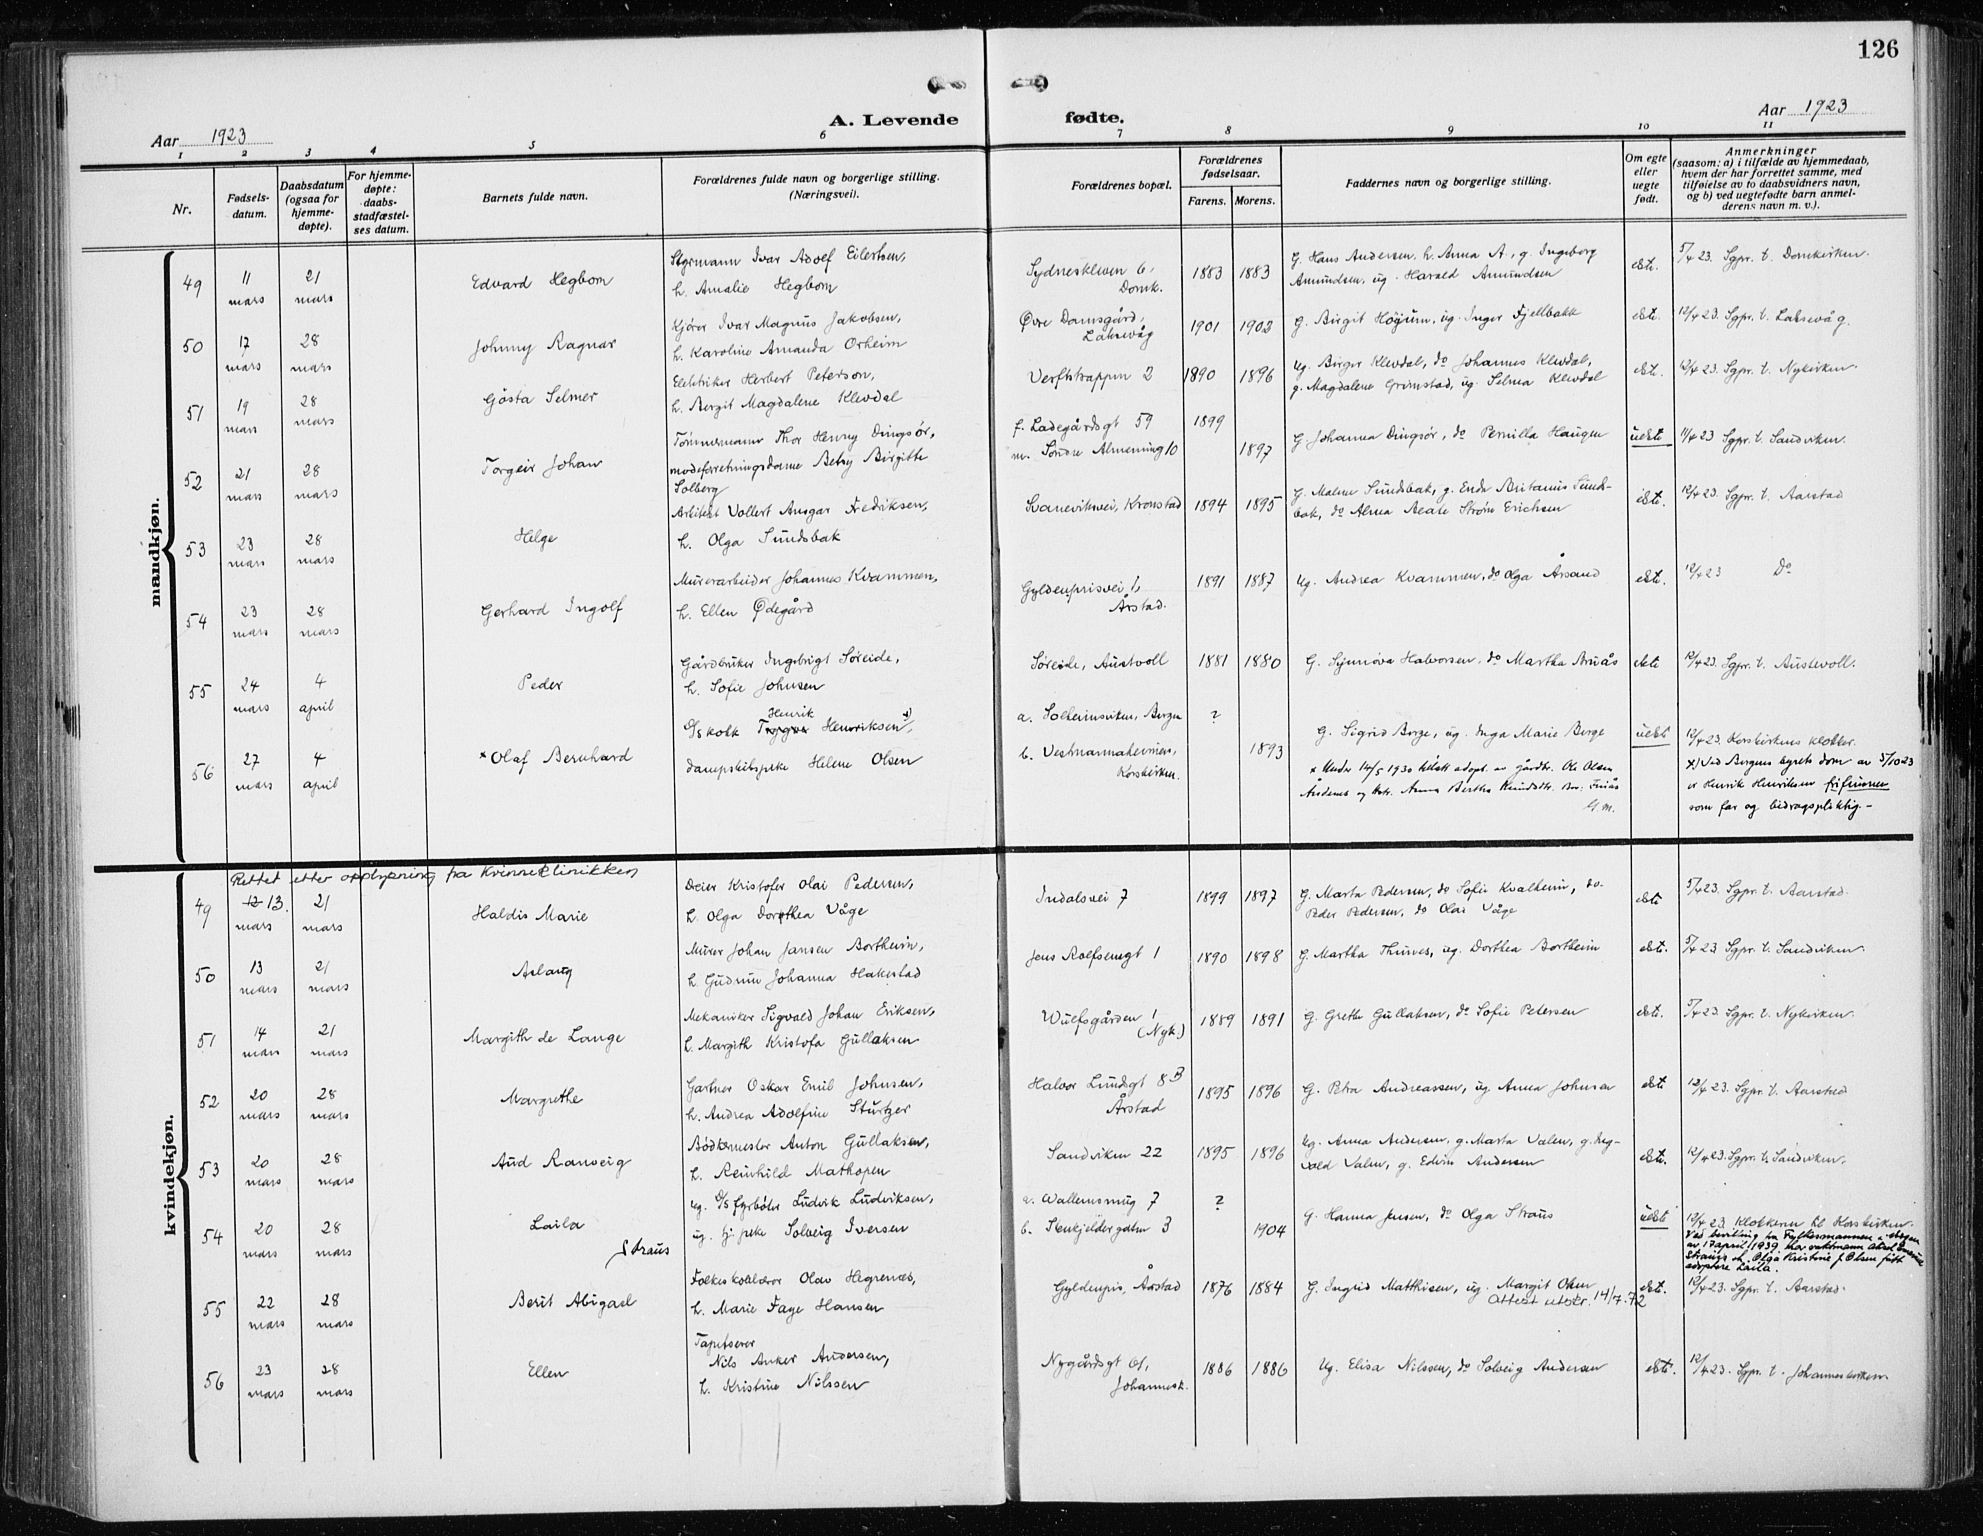 126
Aar 1923
A. Levende fødte.
Aar 1923
1 2 3 4 5 6 7 8 9 10 11
Nr.
Fødsels-
datum.
Daabsdatum
(ogsaa for
hjemme-
døpte).
For hjemme-
døpte:
daabs-
stadfæstel-
ses datum.
Barnets fulde navn.
Forældrenes fulde navn og borgerlige stilling.
(Næringsvei).
Forældrenes bopæl.
Forældrenes
fødselsaar.
Farens. Morens.
Faddernes navn og borgerlige stilling.
Om egte
eller
uegte
født.
Anmerkninger
(saasom: a) i tilfælde av hjemmedaab,
hvem der har forrettet samme, med
tilføielse av to daabsvidners navn,
og b) ved uegtefødte barn anmel-
derens navn m. v.).
mandkjøn.
49 11 mars 21 mars Edvard Hegbom
Styrmann Ivar Adolf Eilertsen,
h. Amalie Hegbom
Sydneskleven 6,
Domk.
1883 1883
G. Hans Andersen, h. Anna A., g. Ingeborg
Amundsen, ug. Harald Amundsen
ekte.
5/4 23. Sgpr. t. Domkirken.
50 17 mars 28 mars Johnny Ragnar
Kjører Ivar Magnus Jakobsen,
h. Karoline Amanda Orheim
Øvre Damsgård,
Laksevåg
1901 1902
G. Birgit Høyum, ug. Inger Fjellbakk
ekte.
12/4 23. Sgpr. t. Laksevåg.
51 19 mars 28 mars Gösta Selmer
Elektriker Herbert Peterson,
h. Bergit Magdalene Klevdal
Verftstrappen 2
1890 1896
Ug. Birger Klevdal, do Johannes Klevdal,
g. Magdalene Grimstad, ug. Selma Klevdal
ekte.
12/4 23. Sgpr. t. Nykirken
52 21 mars 28 mars Torgeir Johan
Tømmermann Thor Henny Dingsør,
modeforretningsdame Betsy Birgitte
Solberg
f. Ladegårdsgt 59
m. Søndre Almenning 10
1899
1897
G. Johanna Dingsør, do Pernilla Haugen
uekte
11/4 23 Sgpr. t. Sandviken.
53 23 mars 28 mars Helge
Arkitekt Vollert Ansgar Fredriksen,
h. Olga Sundsbak
Svaneviksvei, Kronstad
1894 1895
G. Malene Sundsbak, g. Enda Britanus Sunds-
bak, do Alma Beate Strøm Erichsen
ekte.
12/4 23. Sgpr. t. Aarstad
54 23 mars 28 mars Gerhard Ingolf
Murerarbeider Johannes Kvammen,
h. Ellen Ødegård
Gyldenprisvei 1,
Årstad.
1891 1887
Ug. Andrea Kvammen, do Olga Årsand
ekte.
12/4 23 Do
55 24 mars 4 april Peder
Gårdbruker Ingebrigt Søreide,
h. Sofie Johnsen
Søreide, Austvoll
1881 1880
G. Synnøva Halvorsen, do Martha Bruås
ekte
12/4 23. Sgpr. t. Austevoll.
56 27 mars 4 april × Olaf Bernhard
Henrik
D/s kokk Trygve Henriksen x),
dampskibspike Helene Olsen
a. Solheimsviken, Bergen
b. Vestmannaheimen,
Korskirken.
?
1893
G. Sigrid Berge, ug. Inga Marie Berge
uekte
12/4 23. Korskirkens klokker.
x) Ved Bergens byrets dom av 5/10 23
er Henrik Henriksen frifunnen
som far og bidragspliktig –
kvindekjøn.
Rettet etter opplysning fra Kvinneklinikken
49 12 13. mars 21 mars Haldis Marie
Deier Kristofer Olai Pedersen,
h. Olga Dorothea Våge
Indalsvei 7
1899 1897
G. Marta Pedersen, do Sofie Kvalheim, do.
Peder Pedersen, do Olai Våge
ekte
5/4 23. Sgpr. t. Aarstad.
50 13 mars 21 mars Aslaug
Murer Johan Jansen Bortheim,
h. Gudrun Johanna Hakestad
Jens Rolfsensgt 1
1890 1898
G. Martha Thunes, ug. Dorthea Bortheim
ekte.
5/4 23 Sgpr. t. Sandviken.
51 14 mars 21 mars Margith de Lange
Mekaniker Sigvald Johan Eriksen,
h. Margith Kristofa Gullaksen
Wulfsgården 1
(Nyk.)
1889 1891
G. Grethe Gullaksen, do Sofie Petersen
ekte.
5/4 23. Sgpr. t. Nykirken.
52 20 mars 28 mars Margrethe
Gartner Oskar Emil Johnsen,
h. Andrea Adolfine Sturtzer
Halvor Lundsgt 8B
Årstad
1895 1896
G. Petra Andreassen, ug. Anna Johnsen
ekte
12/4 23. Sgpr. t. Aarstad
53 20 mars 28 mars Aud Ranveig
Bødkermester Anton Gullaksen,
h. Reinhild Mathopen
Sandviken 22
1895 1896
Ug. Anna Andersen, g. Marta Valen, g. Ing-
vald Valen, g. Edvin Andersen
ekte.
12/4 23. Sgpr. t. Sandviken.
54 20 mars 28 mars Laila
Straus
ug. D/s fyrbøter Ludvik Ludviksen,
ug. hj. pike Solveig Iversen
a. Wallemsmug 7
b. Stenkjeldergaten 3
?
1904
G. Hanna Jensen, do Olga Straus
uekte
12/4 23 Klokkeren til Korskirken.
Ved bevilling fra Fylkesmannen i Bergen
av 17 april 1939 har vaktmann Aksel
Straus og Olga Kristine f. Olsen fått
adoptere Laila.
55 22 mars 28 mars Berit Abigael
Folkeskolelærer Olav Hegrenæs,
h. Marie Faye Hansen
Gyldenpris, Årstad
1876 1884
G. Ingrid Matthisen, ug. Margit Olsen
Attest utskr. 14/7-72
ekte.
12/4 23. Sgpr. t. Aarstad.
56 23 mars 28 mars Ellen
Tapetserer
Nils Anker Andersen,
h. Kristine Nilssen
Nygårdsgt 61,
Johannesk.
1886 1886
Ug. Elisa Nilssen, do Solveig Andersen
ekte.
12/4 23. Sgpr. t. Johanneskirken